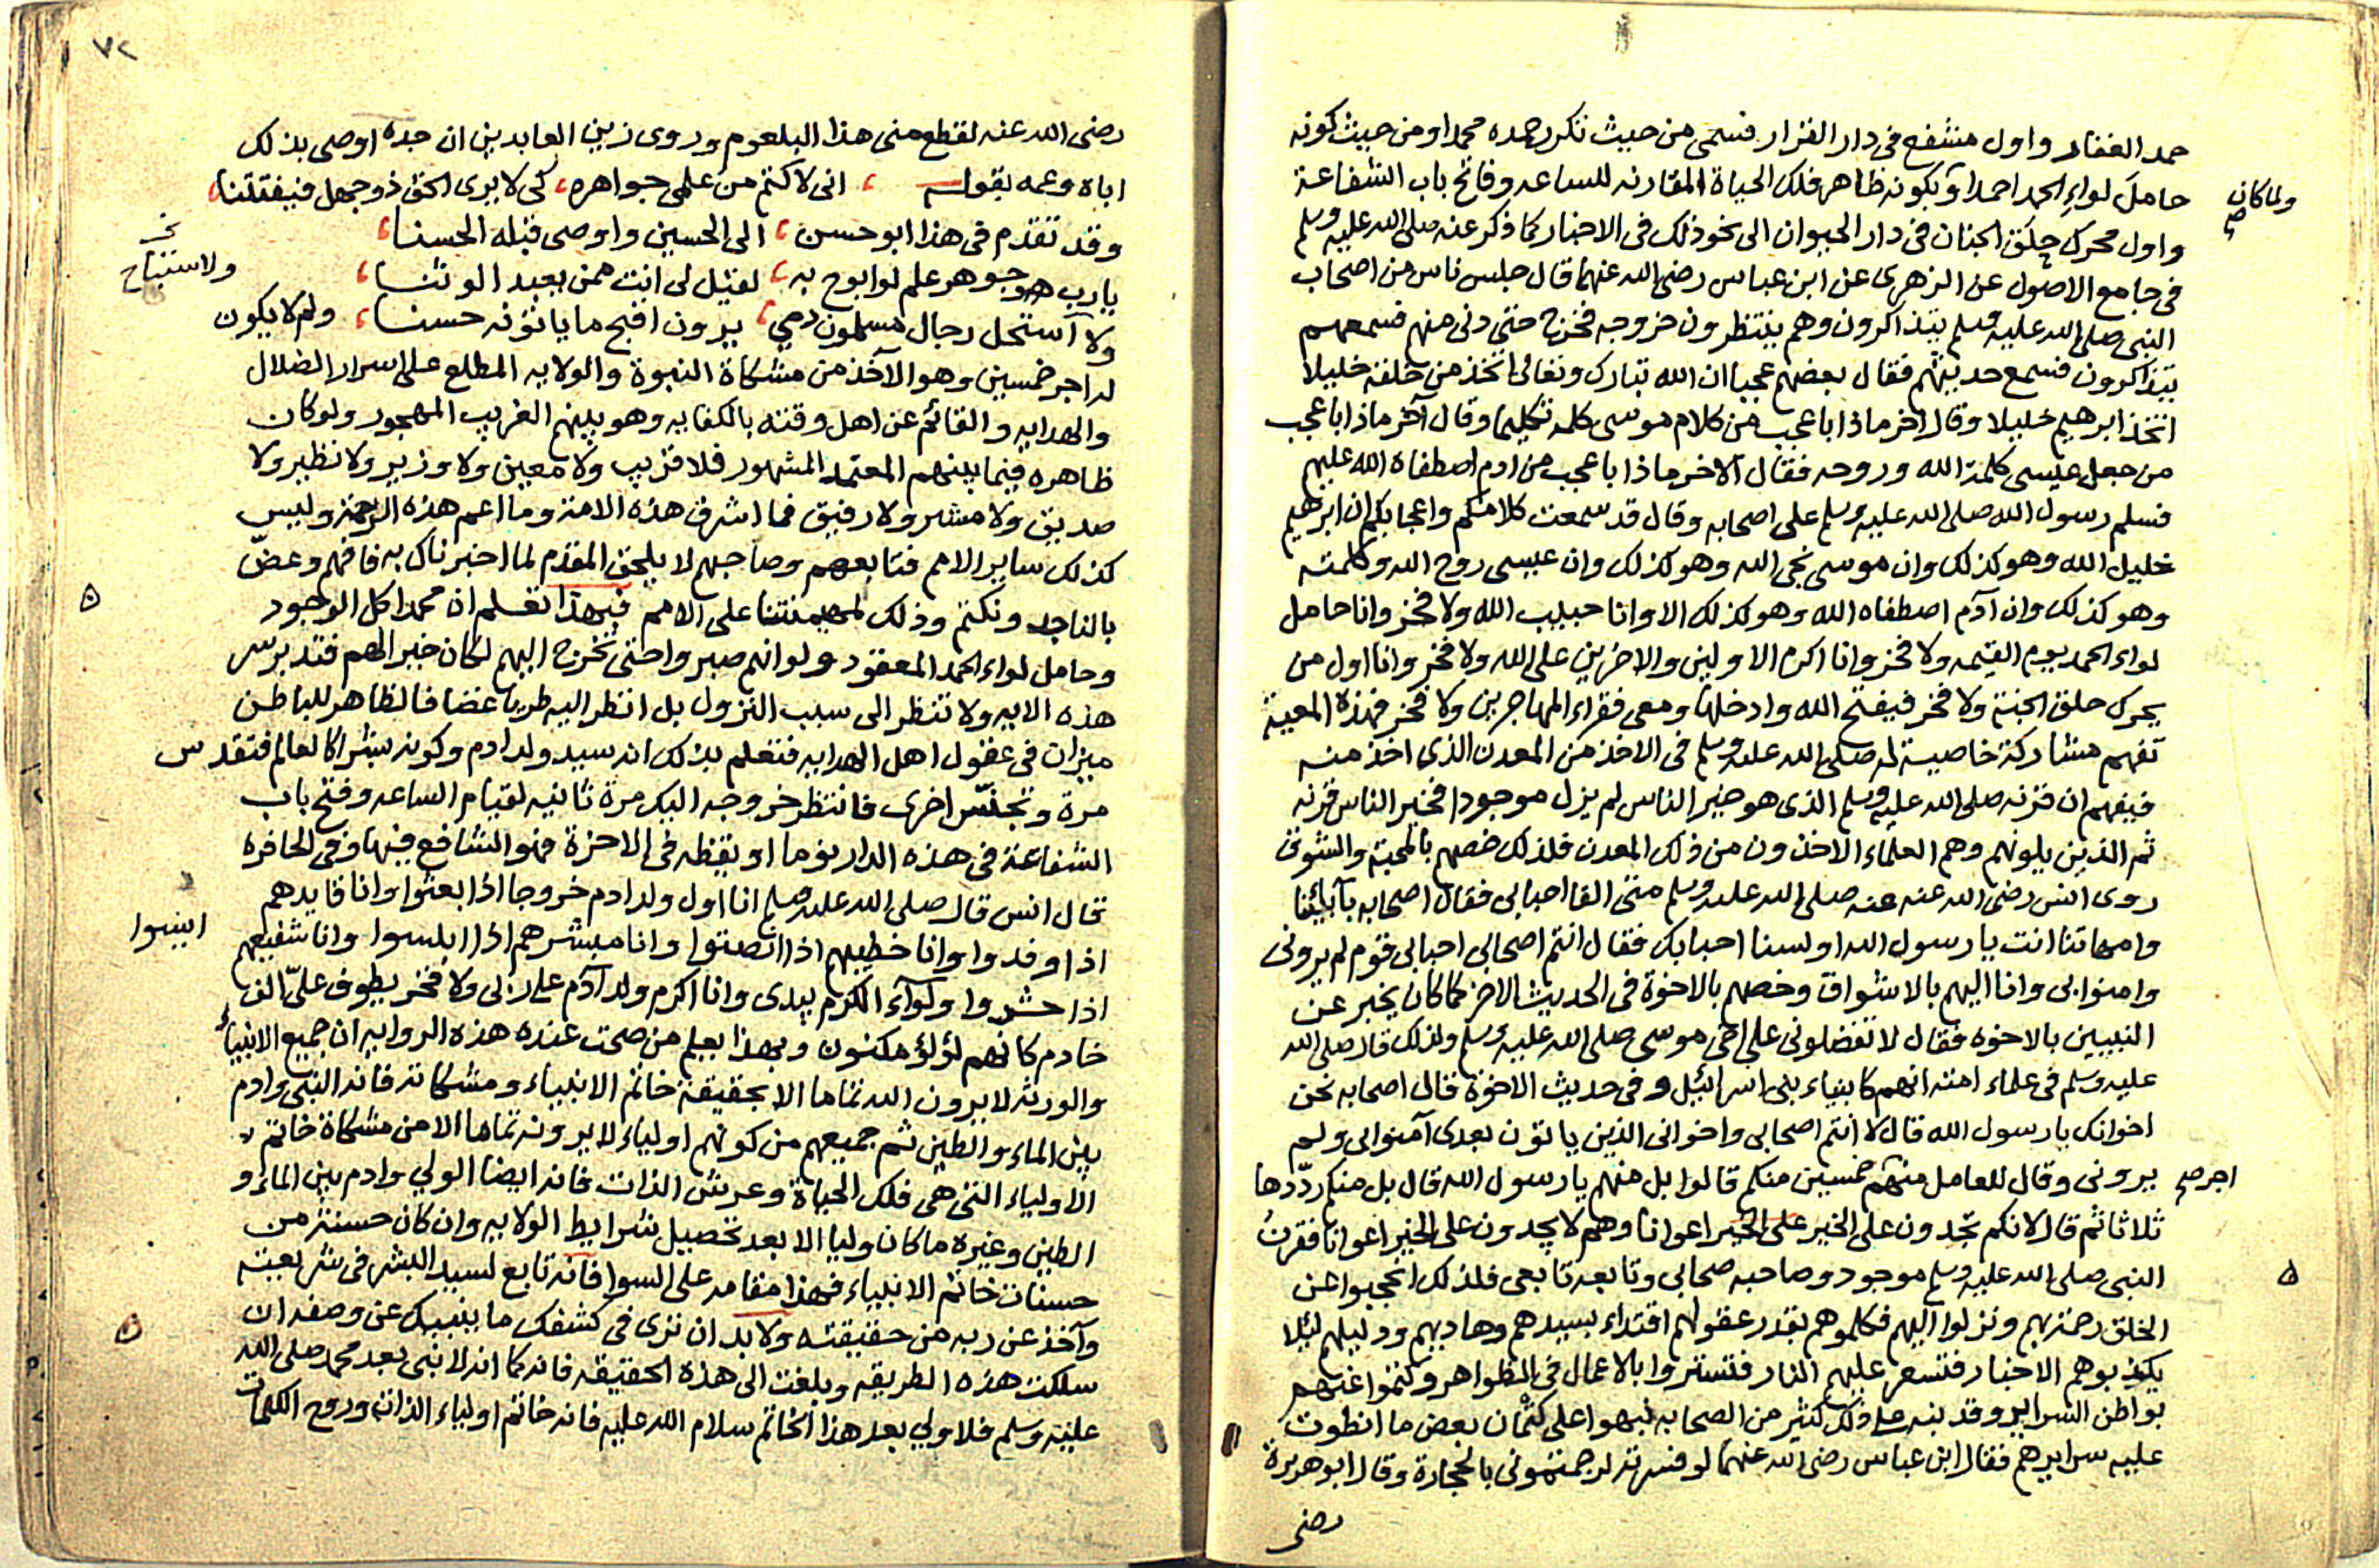 حمد الغفار واول مشفع فى دار القرار فسمى من حيث تكرر حمده محمدا ومن حيث كونه
ولما كان صح
حامل لواء الحمد احمدا وبكونه ظاهر فلك الحياة المقارنه للساعه وفاتح باب الشفاعة
واول محرك حلق الجنان فى دار الحيوان الى نحو ذلك فى الاخبار كما ذكر عنه صلى الله عليه وسلم
فى جامع الاصول عن الزهرى عن ابن عباس رضى الله عنهما قال جلس ناس من اصحاب
النبى صلى الله عليه وسلم يتذاكرون وهم ينتظرون خروجه فخرج حتى دنى منهم فسمعهم
يتذاكرون فسمع حديثهم فقال بعضهم عجبا ان الله تبارك وتعالى اتخذ من خلقه خليلا
اتخذ ابرهيم خليلا وقال اخر ماذا باعجب من كلام موسى كلمه تكليما وقال آخر ماذا باعجب
من جعل عيسى كلمة الله وروحه فقال الاخر ماذا باعجب من ادم اصطفاه الله عليهم
فسلم رسول الله صلى الله عليه وسلم على اصحابه وقال قد سمعت كلامكم واعجابكم ان ابرهيم
خليل الله وهو كذلك وان موسى نجى الله وهو كذلك وان عيسى روح الله وكلمته
وهو كذلك وان آدم اصطفاه الله وهو كذلك الا وانا حبيب الله ولا فخر وانا حامل
لواء الحمد يوم القيمه ولا فخر وانا اكرم الاولين والاخرين على الله ولا فخر وانا اول من
يحرك حلق الجنة ولا فخر فيفتح الله وادخلها ومعى فقراء المهاجرين ولا فخر فهذه المعية
تفهم مشاركة خاصية له صلى الله عليه وسلم فى الاخذ من المعدن الذى اخذ منه
فيفهم ان قرنه صلى الله عليه وسلم الذى هو خير الناس لم يزل موجودا فخير الناس قرنه
ثم الذين يلونهم وهم العلماء الاخذون من ذلك المعدن فلذلك خصهم بالمحبة والشوق
روى انس رضى الله عنه عنه صلى الله عليه وسلم متى القا احبابى فقال اصحابه بآبائنا
وامهاتنا انت يا رسول الله اولسنا احبابك فقال انتم اصحابى احبابى قوم لم يرونى
وامنوا بى وانا اليهم بالاشواق وخصهم بالاخوة فى الحديث الاخر كما كان يخبر عن
النبيين بالاخوه فقال لا تفضلونى على اخى موسى صلى الله عليه وسلم ولذلك قال صلى الله
عليه وسلم فى علماء امته انهم كانبياء بنى اسرائيل وفى حديث الاخوة قال اصحابه نحن
اخوانك يا رسول الله قال لا انتم اصحابى واخوانى الذين ياتون بعدى آمنوا بى ولم
اجر صح
يرونى وقال للعامل منهم خمسين منكم قالوا بل منهم يا رسول الله قال بل منكم ردّدها
ثلاثا ثم قال لانكم تجدون على الخير على الخير اعوانا وهم لا يجدون على الخير اعوانا فقرن
النبى صلى الله عليه وسلم موجود وصاحبه صحابى وتابعه تابعى فلذلك انحجبوا عن
الخلق رحمة بهم ونزلوا اليهم فكلموهم بقدر عقولهم اقتداء بسيدهم وهاديهم ودليلهم ليلا
يكذبوهم الاخبار فتسعر عليهم النار فتستروا بالاعمال فى الظواهر وكتموا عنهم
بواطن السراير وقد نبه على ذلك كثير من الصحابه نبهوا على كتمان بعض ما انطوت
عليه سرايرهم فقال ابن عباس رضى الله عنهما لو فسرته لرجمتمونى بالحجارة وقال ابو هريرة
رضى
٧٢
رضى الله عنه لقطع منى هذا البلعوم وروى زين العابدين ان جده اوصى بذلك
اباه وعمه بقوله ، انى لاكتم من علمى جواهره ، كى لا يرى الحق ذو جهل فيفتتنا ،
وقد تقدم فى هذا ابو حسن ، الى الحسين واوصى قبله الحسنا ،
يا رب جوهر علم لو ابوح به ، لقيل لى انت ممن يعبد الوثنا ،
ولاستباح
ولا استحل رجال مسلمون دمى ، يرون اقبح ما ياتونه حسنا ، ولم لا يكون
له اجر خمسين وهو الآخذ من مشكاة النبوة والولايه المطلع على اسرار الضلال
والهدايه والقائم عن اهل وقته بالكفايه وهو بينهم الغريب المهجور ولو كان
ظاهره فيما بينهم المعتمد المشهور فلا قريب ولا معين ولا وزير ولا نظير ولا
صديق ولا مشير ولا رفيق فما اشرف هذه الامة وما اعم هذه الرحمة وليس
كذلك ساير الامم فتابعهم وصاحبهم لا يلحق المقدم لما اخبرناك به فافهم وعضّ
بالناجد ونكتم وذلك لهيمنتنا على الامم فبهذا تعلم ان محمدا كل الوجود
وحامل لواء الحمد المعقود ولو انهم صبروا حتى تخرج اليهم لكان خيرا لهم فتدبر سر
هذه الايه ولا تنظر الى سبب النزول بل انظر اليه طريا غضا فالظاهر للباطن
ميزان فى عقول اهل الهدايه فتعلم بذلك انه سيد ولد ادم وكونه بشرا كالعالم فتقدس
مرة وتجنّس اخرى فانتظر خروجه اليك مرة ثانيه لقيام الساعه وفتح باب
الشفاعة فى هذه الدار نوما او يقظه فى الاخرة فهو الشافع فيها وفى الحافره
قال انس قال صلى الله عليه وسلم انا اول ولد ادم خروجا اذا بعثوا وانا قايدهم
اذا وفدوا وانا خطيبهم اذا انصتوا وانا مبشرهم اذا ابلسوا وانا شفيعهم
ايئسوا
اذا حشروا ولواء الكرم بيدى وانا اكرم ولد آدم على ربى ولا فخر يطوف علىّ الف
خادم كانهم لؤلؤ مكنون وبهذا يعلم من صحت عنده هذه الروايه ان جميع الانبياء
والورثه لا يرون الله تماما الا بحقيقة خاتم الانبياء ومشكاته فانه النبى وادم
بين الماء والطين ثم جميعهم من كونهم اولياء لا يرونه تماما الا من مشكاة خاتم
الاولياء التى هى فلك الحياة وعرش الذات فانه ايضا الولي وادم بين الماء و
الطين وغيره ما كان وليا الا بعد تحصيل شرايط الولايه وان كان حسنة من
حسنات خاتم الانبياء فهذا مقامه على السوا فانه تابع لسيد البشر فى شريعته
وآخذ عن ربه من حقيقته ولا بد ان ترى فى كشفك ما ينبيك عن وصفه ان
سلكت هذه الطريقه وبلغت الى هذه الحقيقه فانه كما انه لا نبى بعد محمد صلى الله
عليه وسلم فلا ولي بعد هذا الخاتم سلام الله عليه فانه خاتم اولياء الذات وروح الكلمات